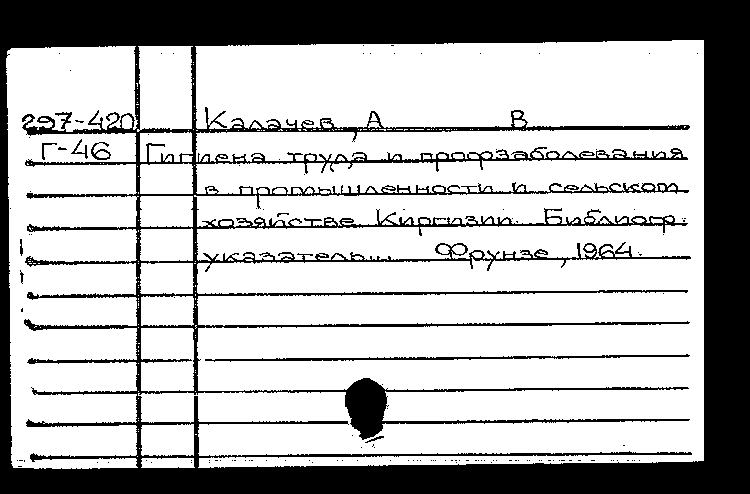 297-420 Калачев, А В
Г-46 Гигиена труда и профзаболевания
в промышленности и сельском
хозяйстве Киргизии. Библиогр.
указатель... Фрунзе, 1964.